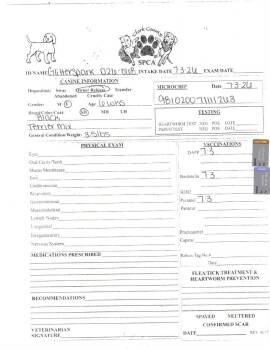 Clark County
SPCA
ID/NAME Glitterspark 026-068 INTAKE DATE 7-3-26 EXAM DATE
CANINE INFORMATION
Disposition: Stray Owner Release Transfer
Abandoned Cruelty Case
Gender: M F Age 6 wks
Breed/Color/Coat: SH MH LH
Black
Terrier Mix
General Condition/Weight: 3.5lbs
MICROCHIP DATE 7-3-26
TESTING
HEARTWORM TEST NEG POS DATE
PARVO TEST NEG POS DATE
PHYSICAL EXAM
Eyes
Oral Cavity/Teeth
Mucus Membrane
Ears
Cardiovascular
Respiratory
Gastrointestinal
Musculoskeletal
Lymph Nodes
Urogenital
Integumentary
Nervous System
VACCINATIONS
DAPP 7-3
Bordetella 7-3
Pyrantel 7-3
Praziquantel
Capstar
Rabies Tag No.#
MEDICATIONS PRESCRIBED
FLEA/TICK TREATMENT &
HEARTWORM PREVENTION
RECOMMENDATIONS
SPAYED NEUTERED
CONFIRMED SCAR
VETERINARIAN
SIGNATURE DATE